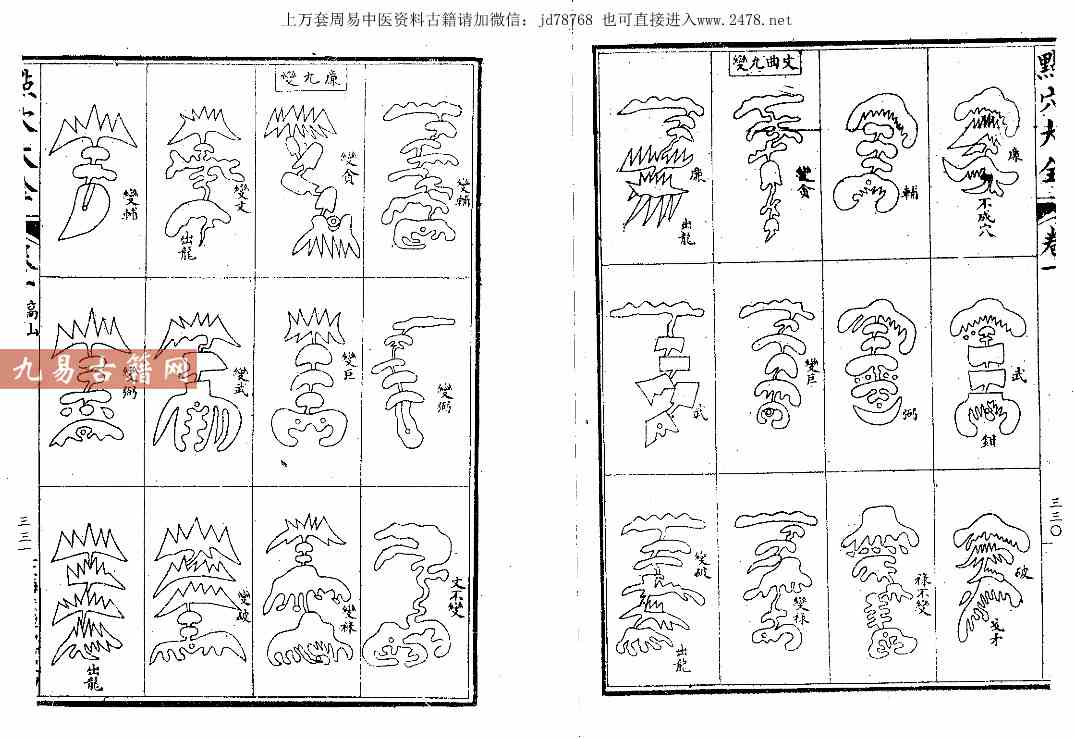 上万套周易中医资料古籍请加微信：jd78768 也可直接进入www.2478.net
點穴大全
卷一
三三〇
廉
不成穴
武
鉗
破
輔
弼
祿不變
變九曲文
變貪
變巨
變祿
廉
出龍
武
變破
出龍
變輔
變弼
文不變
變九廉
變貪
變巨
變祿
變文
出龍
變武
變破
變輔
變弼
出龍
高山
三三一
九易古籍网